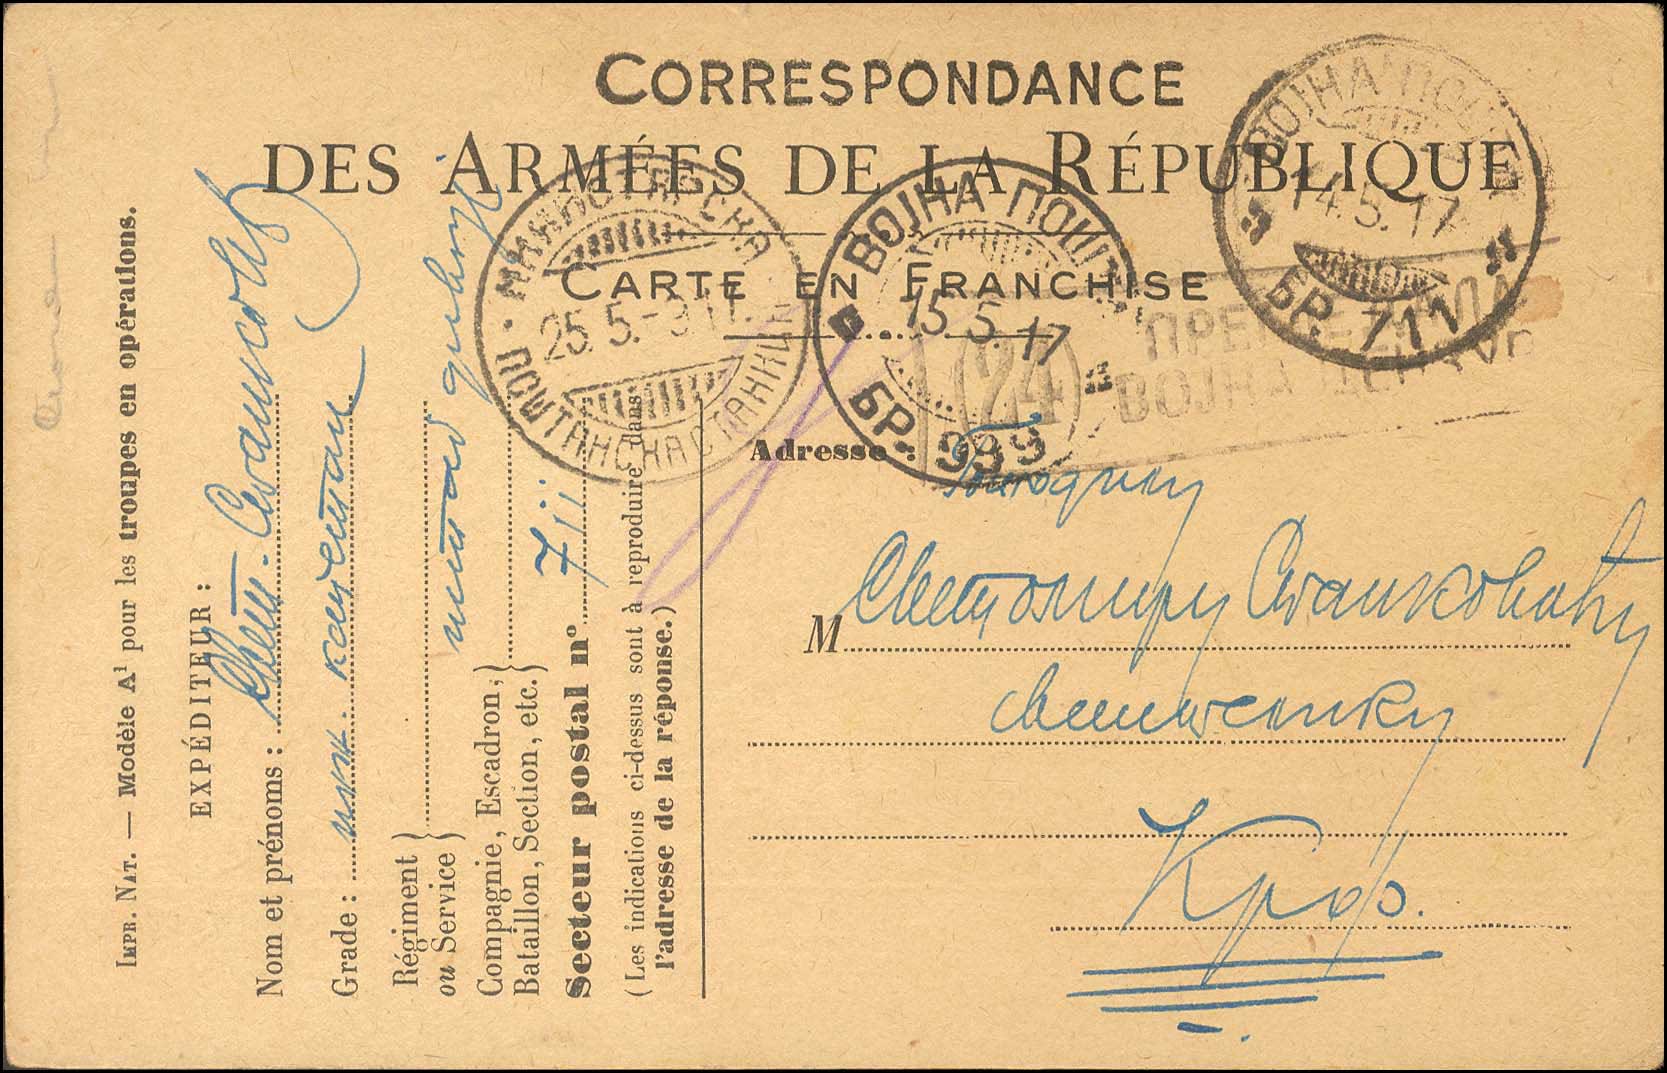 CORRESPONDANCE
DES ARMÉES DE LA RÉPUBLIQUE
CARTE EN FRANCHISE
ВОЈНА ПОШТА
14.5.17
БР. 711
ВОЈНА ПОШТА
15 5. 17
БР. 999
МИНИСТАРСКА
25. 5.
ПОШТАНСКА СТАНИЦА
(24)
ВОЈНА
Adresse :
Господину
M Светомиру Станковићу
свештенику
Крф.
IMPR. NAT. — Modèle A¹ pour les troupes en opérations.
EXPÉDITEUR :
Nom et prénoms : Свет. Станковић
Grade : инж. капетан
Régiment
ou Service
штаб
Compagnie, Escadron,
Bataillon, Section, etc.
Secteur postal n° 711
(Les indications ci-dessus sont à reproduire dans
l'adresse de la réponse.)